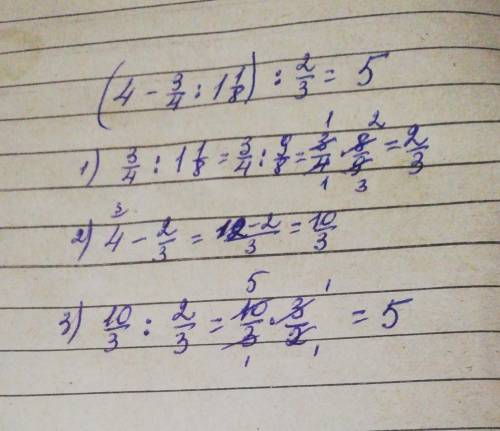 (4 - 3/4 : 1 1/8) : 2/3 = 5
1) 3/4 : 1 1/8 = 3/4 : 9/8 = 3/4 · 8/9 = 2/3
2) 4 - 2/3 = 12-2/3 = 10/3
3) 10/3 : 2/3 = 10/3 · 3/2 = 5